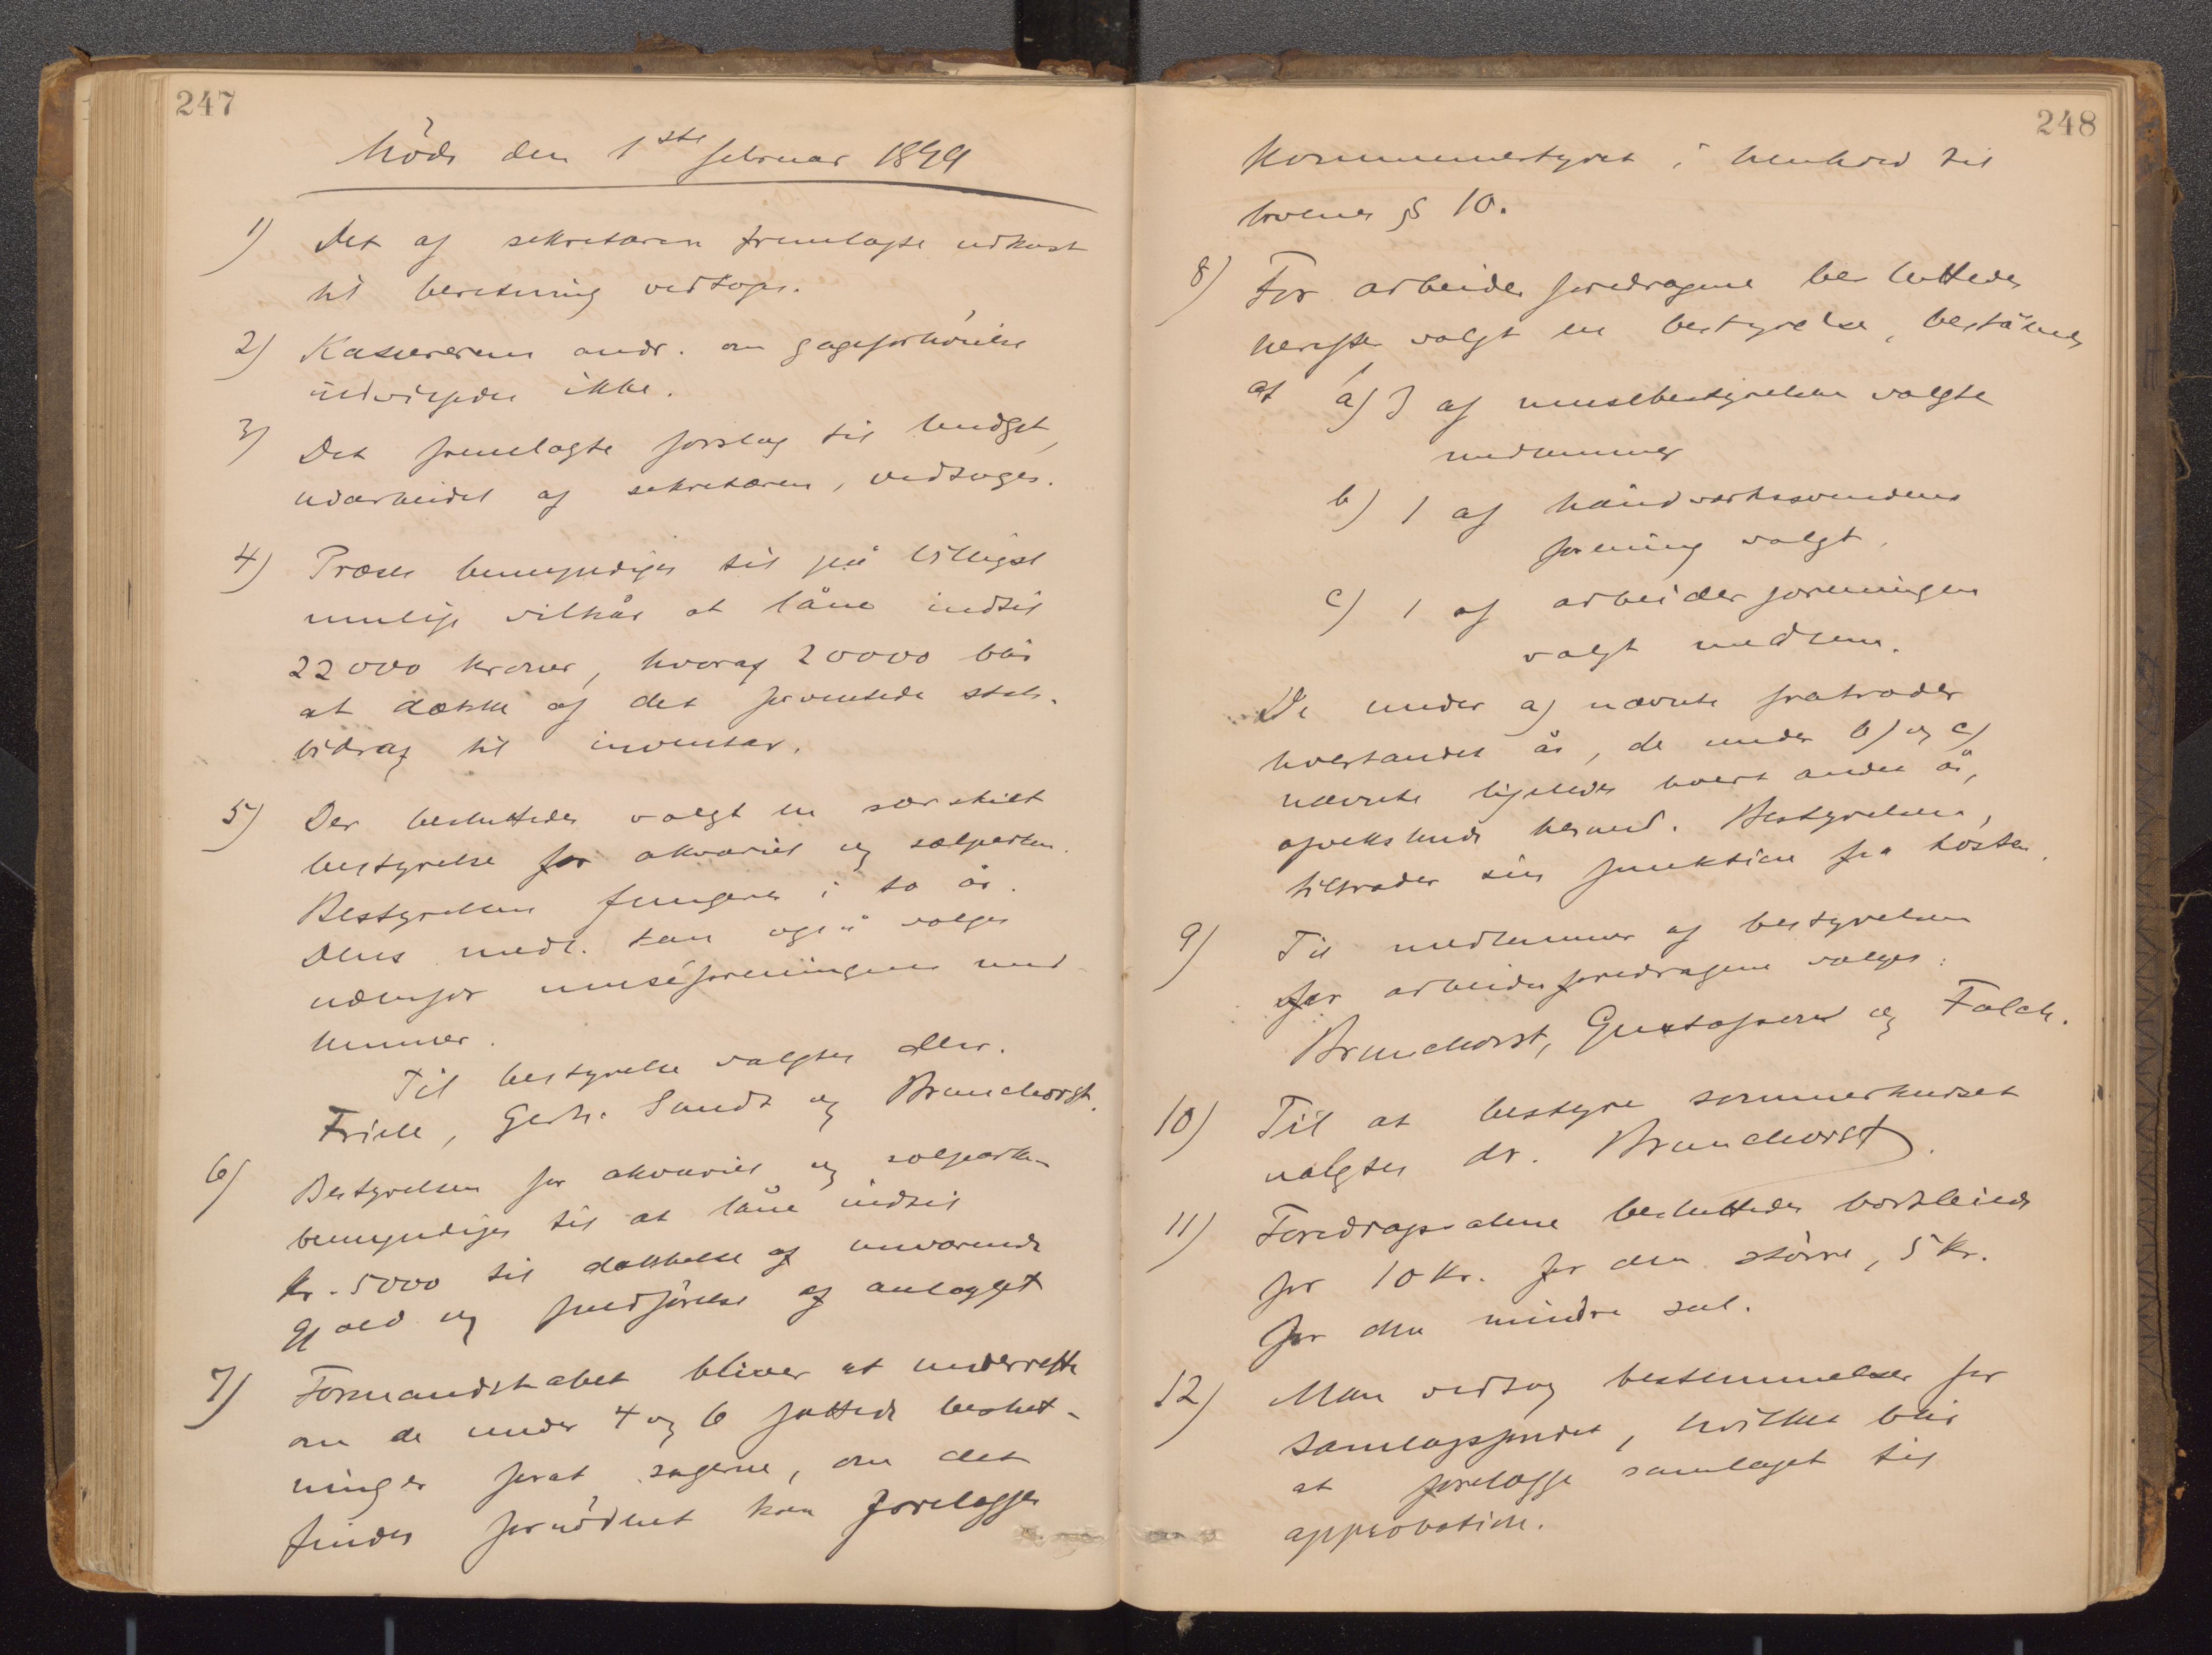 247
Möde den 1ste februar 1899
1) Det af sekretæren fremlagte udkast
til beretning vedtoges.
2) Kassererens andr. om gageforhöielse
indvilgedes ikke.
3) Det fremlagte forslag til budget,
udarbeidet af sekretæren, vedtoges.
4) Præses bemyndiges til på billigst
mulige vilkår at låne indtil
22000 kroner, hvoraf 20000 blir
at dække af det forventede stats-
bidrag til inventar.
5) Der besluttedes valgt en særskilt
bestyrelse for akvariet og sælparken.
Bestyrelsen fungerer i to år.
Dens medl. kan også vælges
udenfor muséforeningens med-
lemmer.
Til bestyrelse valgtes dhrr.
Friele, Gerh. Sundt og Brunchorst.
6) Bestyrelsen for akvariet og sælparken
bemyndiges til at låne indtil
kr. 5000 til dækkelse af nuværende
gjæld og fuldförelse af anlægget
7) Formandskabet bliver at underrette
om de under 4 og 6 fattede beslut-
ninger forat sagerne, om det
findes fornödent kan forelægges
248
kommunestyret i henhold til
lovens § 10.
8) For arbeiderforedragene besluttedes
herefter valgt en bestyrelse, bestående
af a) 3 af musébestyrelsen valgte
medlemmer
b) 1 af håndverkssvendenes
forening valgt.
c) 1 af arbeiderforeningen
valgt medlem.
De under a) nævnte fratræder
hvertandet år, de under b) og c)
nævnte ligeledes hvert andet år,
afvekslende hermed. Bestyrelsen
tiltræder sin funktion fra hösten.
9) Til medlemmer af bestyrelsen
for arbeiderforedragene valges:
Brunchorst, Gustafson og Falch.
10) Til at bestyre sommerkurset
valgtes dr. Brunchorst.
11) Foredragssalene besluttedes bortleiede
for 10 kr. for den större, 5 kr.
for den mindre sal.
12) Man vedtog bestemmelser for
samlagsfondet, hvilket blir
at forelægge samlaget til
approbation.